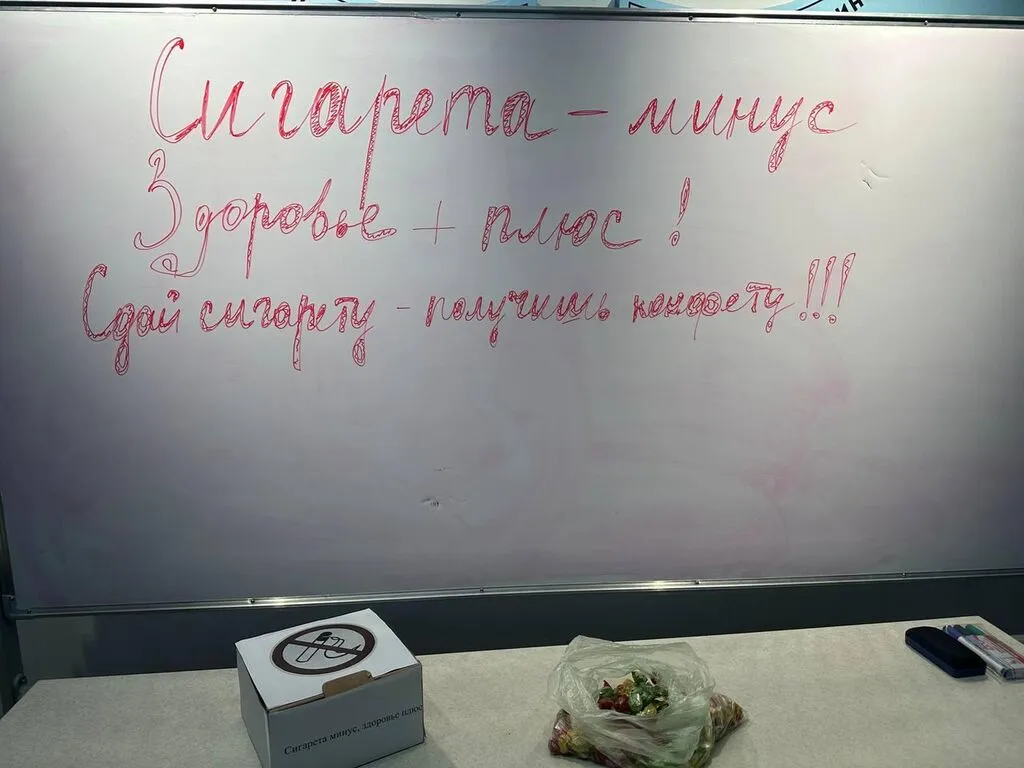 Сигарета - минус
Здоровье + плюс!
Сдай сигарету - получишь конфету!!!
Сигарета минус, здоровье плюс